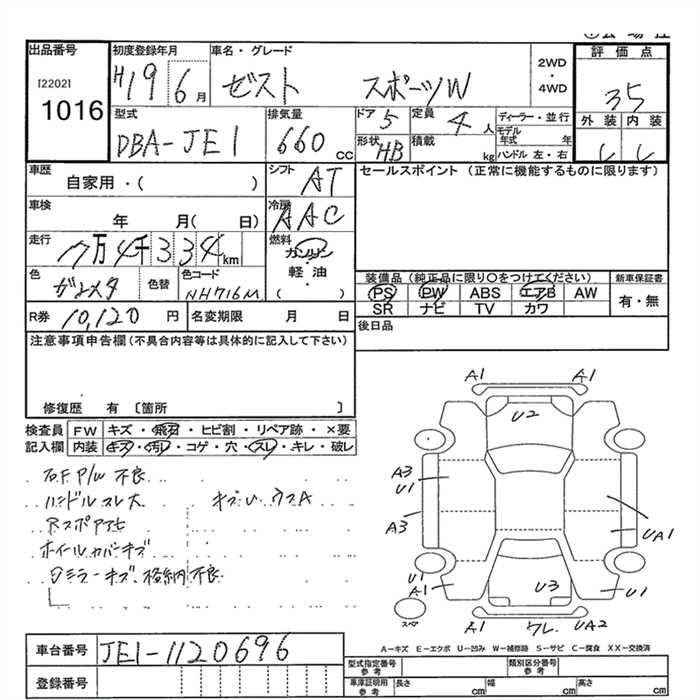 出品番号
[2202]
1016
初度登録年月
H19 6月
車名・グレード
ゼスト スポーツW
2WD
・
4WD
評価点
35
外装 内装
型式
DBA-JE1
排気量
660 CC
ドア 5
定員 4人
形状 HB
積載 kg
ディーラー・並行
モデル年式 年
ハンドル 左・右
車歴
自家用・( )
シフト
AT
セールスポイント (正常に機能するものに限ります)
車検
年 月( 日)
冷房
AAC
走行
7万4千334km
燃料
ガソリン
・
軽油
・
( )
色
ガンメタ
色替
色コード
NH716M
装備品 (純正品に限り○をつけてください)
PS PW ABS エアB AW
SR ナビ TV カワ
新車保証書
有・無
R券 10,120 円
名変期限 月 日
後日品
注意事項申告欄(不具合内容等は具体的に記入して下さい)
修復歴 有 〔箇所 〕
検査員記入欄
FW キズ・飛石・ヒビ割・リペア跡・×要
内装 キズ・汚レ・コゲ・穴・スレ・キレ・破レ
P/W 不良
ハンドルスレ大
キズU ウスA
ホイールカバーキズ
ミラーキズ、格納不良
A1 A1
U2
A3
U1
A3
UA1
U1
A1
U3
U1
スペ
A1 ワレ UA2
A-キズ E-エクボ U-凹み W-補修跡 S-サビ C-腐食 XX-交換済
車台番号
JE1-1120696
登録番号
型式指定番号
参考
類別区分番号
参考
車庫証明用
参考
長さ cm
幅 cm
高さ cm